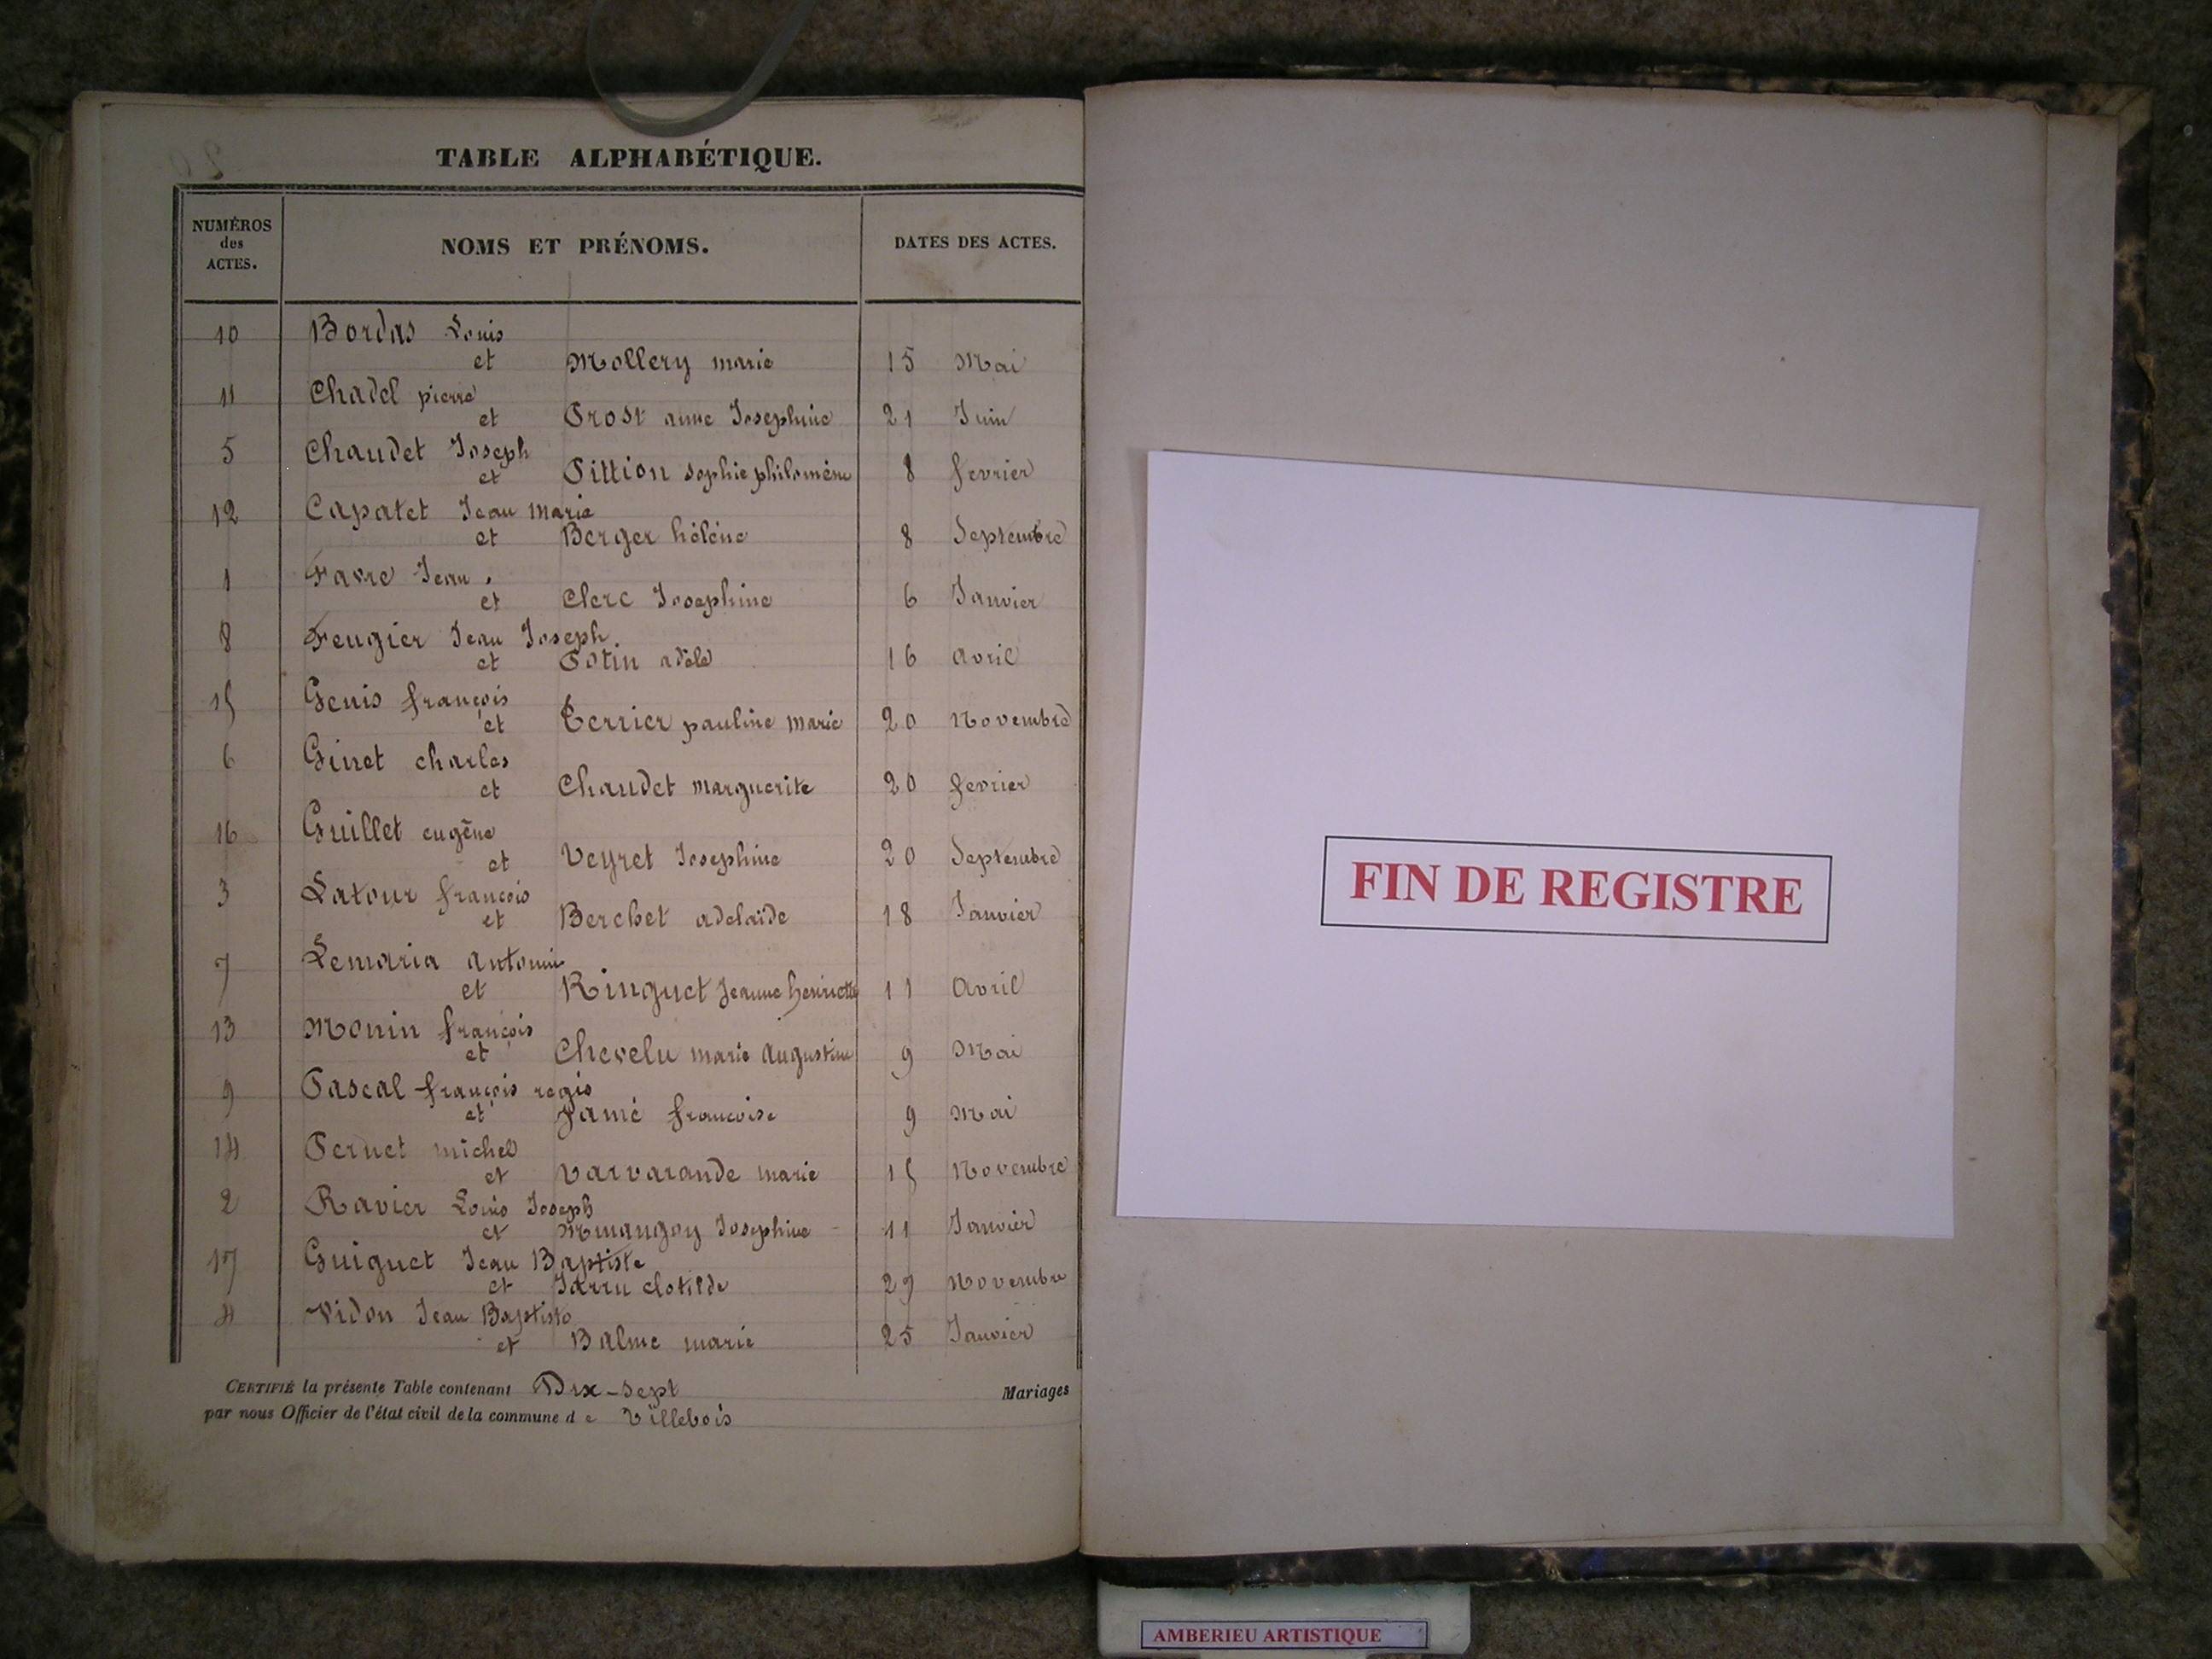 TABLE ALPHABÉTIQUE.
NUMÉROS des ACTES.
NOMS ET PRÉNOMS.
DATES DES ACTES.
10 Bordas Louis
et Mollery marie 15 Mai
11 Chadel pierre
et Prost anne Josephine 21 Juin
5 Chaudet Joseph
et Pittion sophie philomène 8 fevrier
12 Capatet Jean Marie
et Berger hélène 8 Septembre
1 Favre Jean
et Clerc Josephine 6 Janvier
8 Feugier Jean Joseph
et Potin adèle 16 avril
15 Genis françois
et Terrier pauline Marie 20 Novembre
6 Ginet charles
et Chaudet Marguerite 20 fevrier
16 Guillet eugène
et Veyret Josephine 20 Septembre
3 Latour françois
et Berchet adelaïde 18 Janvier
7 Lemaria antonin
et Ringuet Jeanne henriette 11 Avril
13 Monin françois
et Chevelu marie Augustine 9 Mai
9 Pascal françois regis
et Jamé francoise 9 Mai
14 Pernet michel
et Varvarande marie 15 Novembre
2 Ravier Louis Joseph
et Josephine 11 Janvier
17 Guiguet Jean Baptiste
et Jarru clotilde 29 Novembre
4 Vidon Jean Baptiste
et Balme marie 25 Janvier
CERTIFIÉ la présente Table contenant Dix-sept Mariages
par nous Officier de l'état civil de la commune de Villebois
FIN DE REGISTRE
AMBERIEU ARTISTIQUE